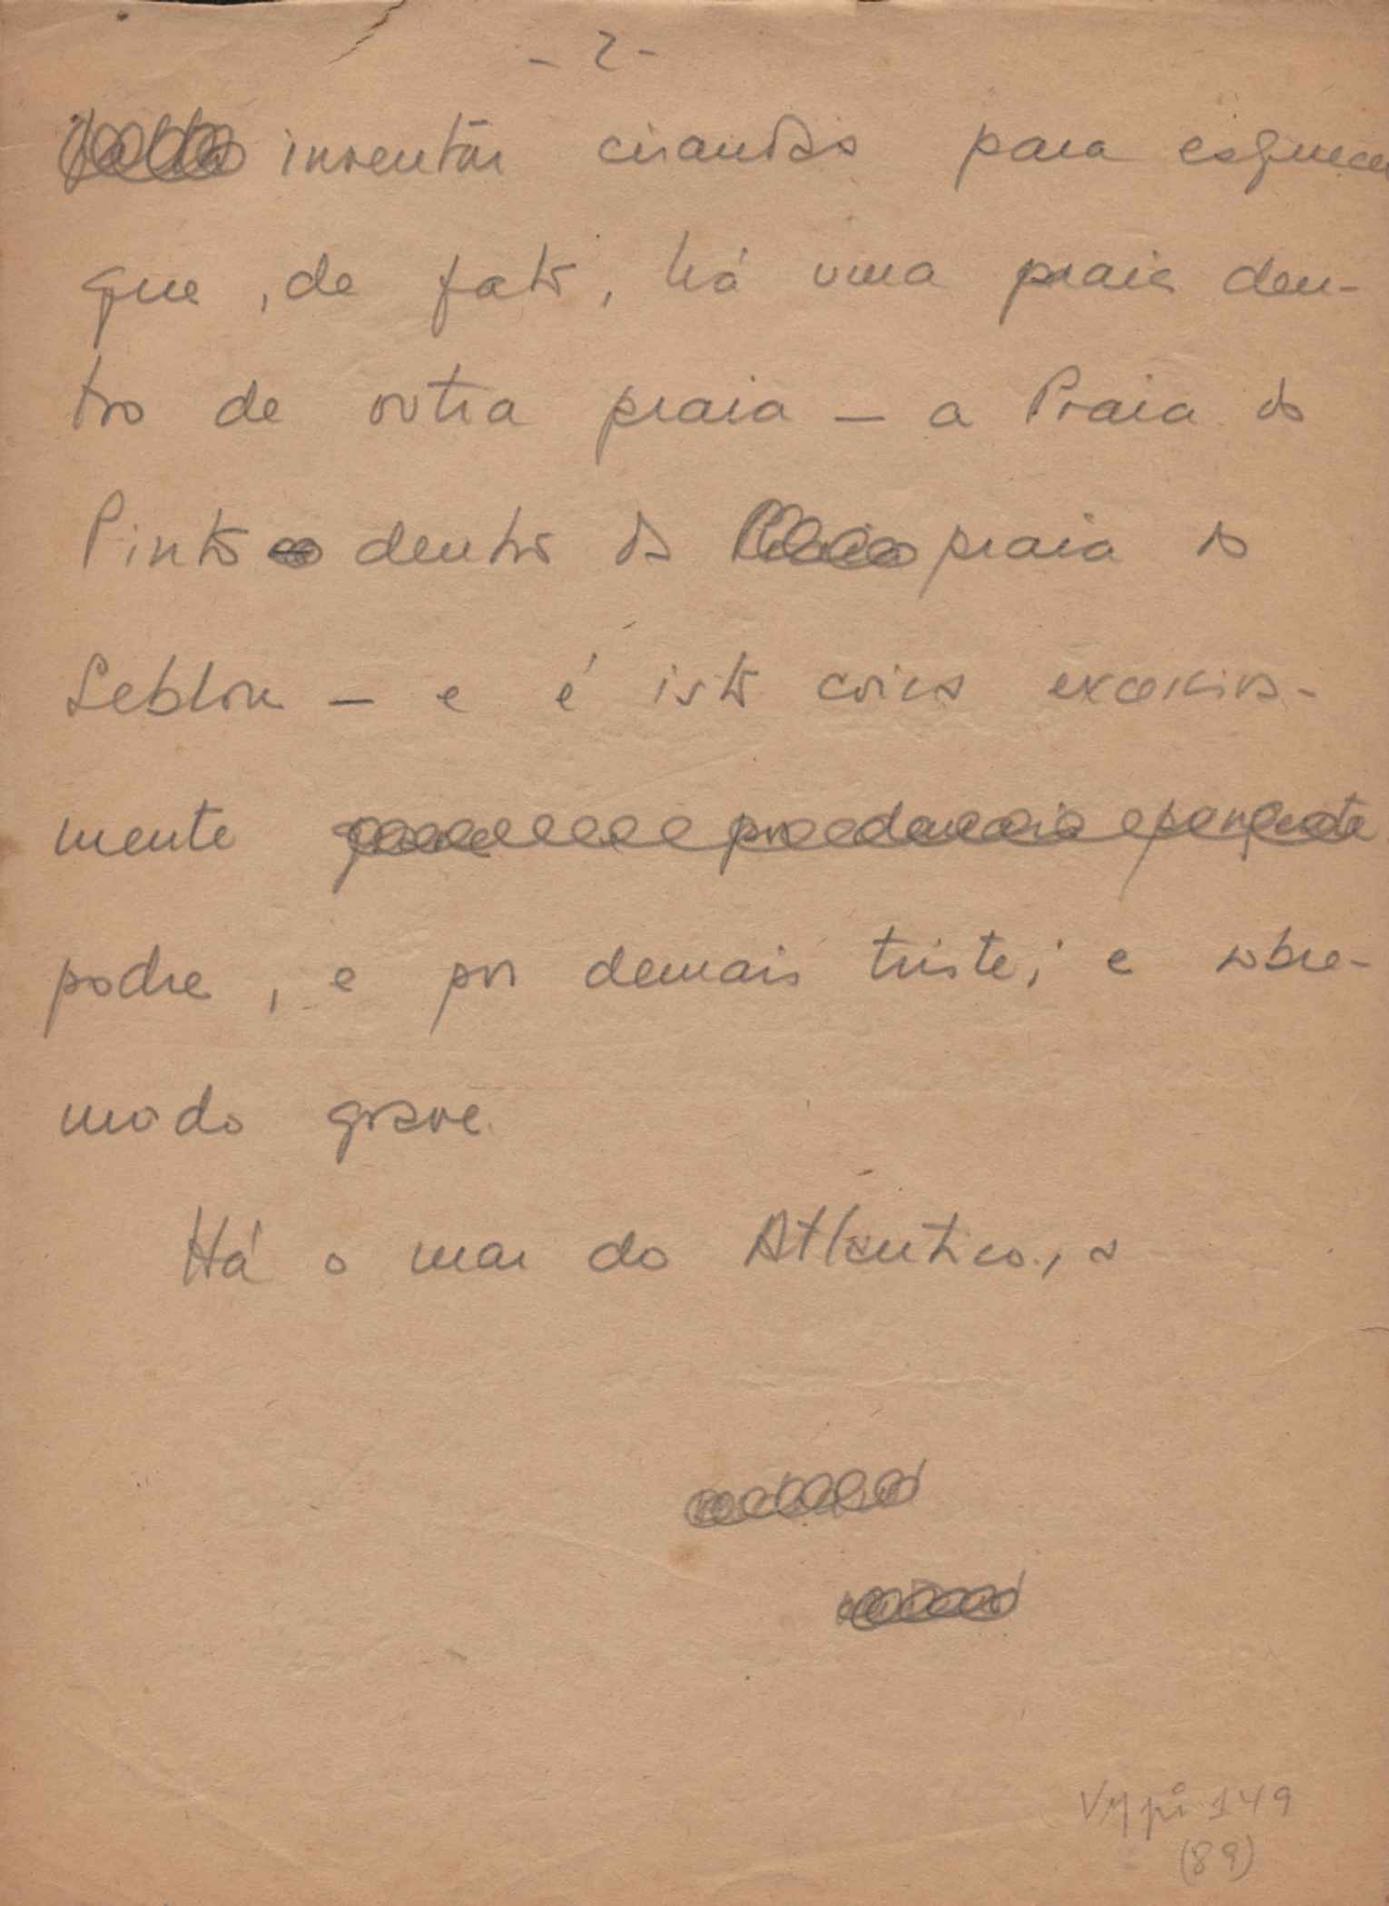 - 2 -
inventar cirandas para esquecer
que, de fato, há uma praia den-
tro de outra praia — a Praia do
Pinto dentro da praia do
Leblon — e é isto coisa excessiva-
mente
podre, e por demais triste; e sobre-
modo grave.
Há o mar do Atlântico, o
VM pi 149
(89)